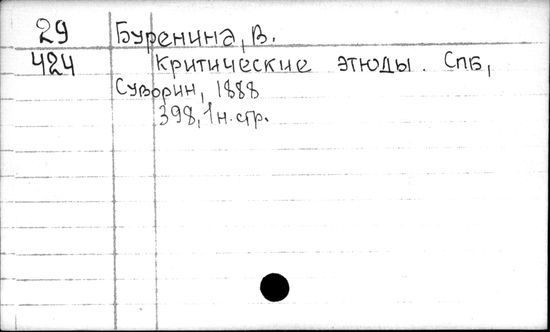 29 Буренина, В.
424 Критические этюды. Спб,
Суворин, 1888
398, 1н. стр.